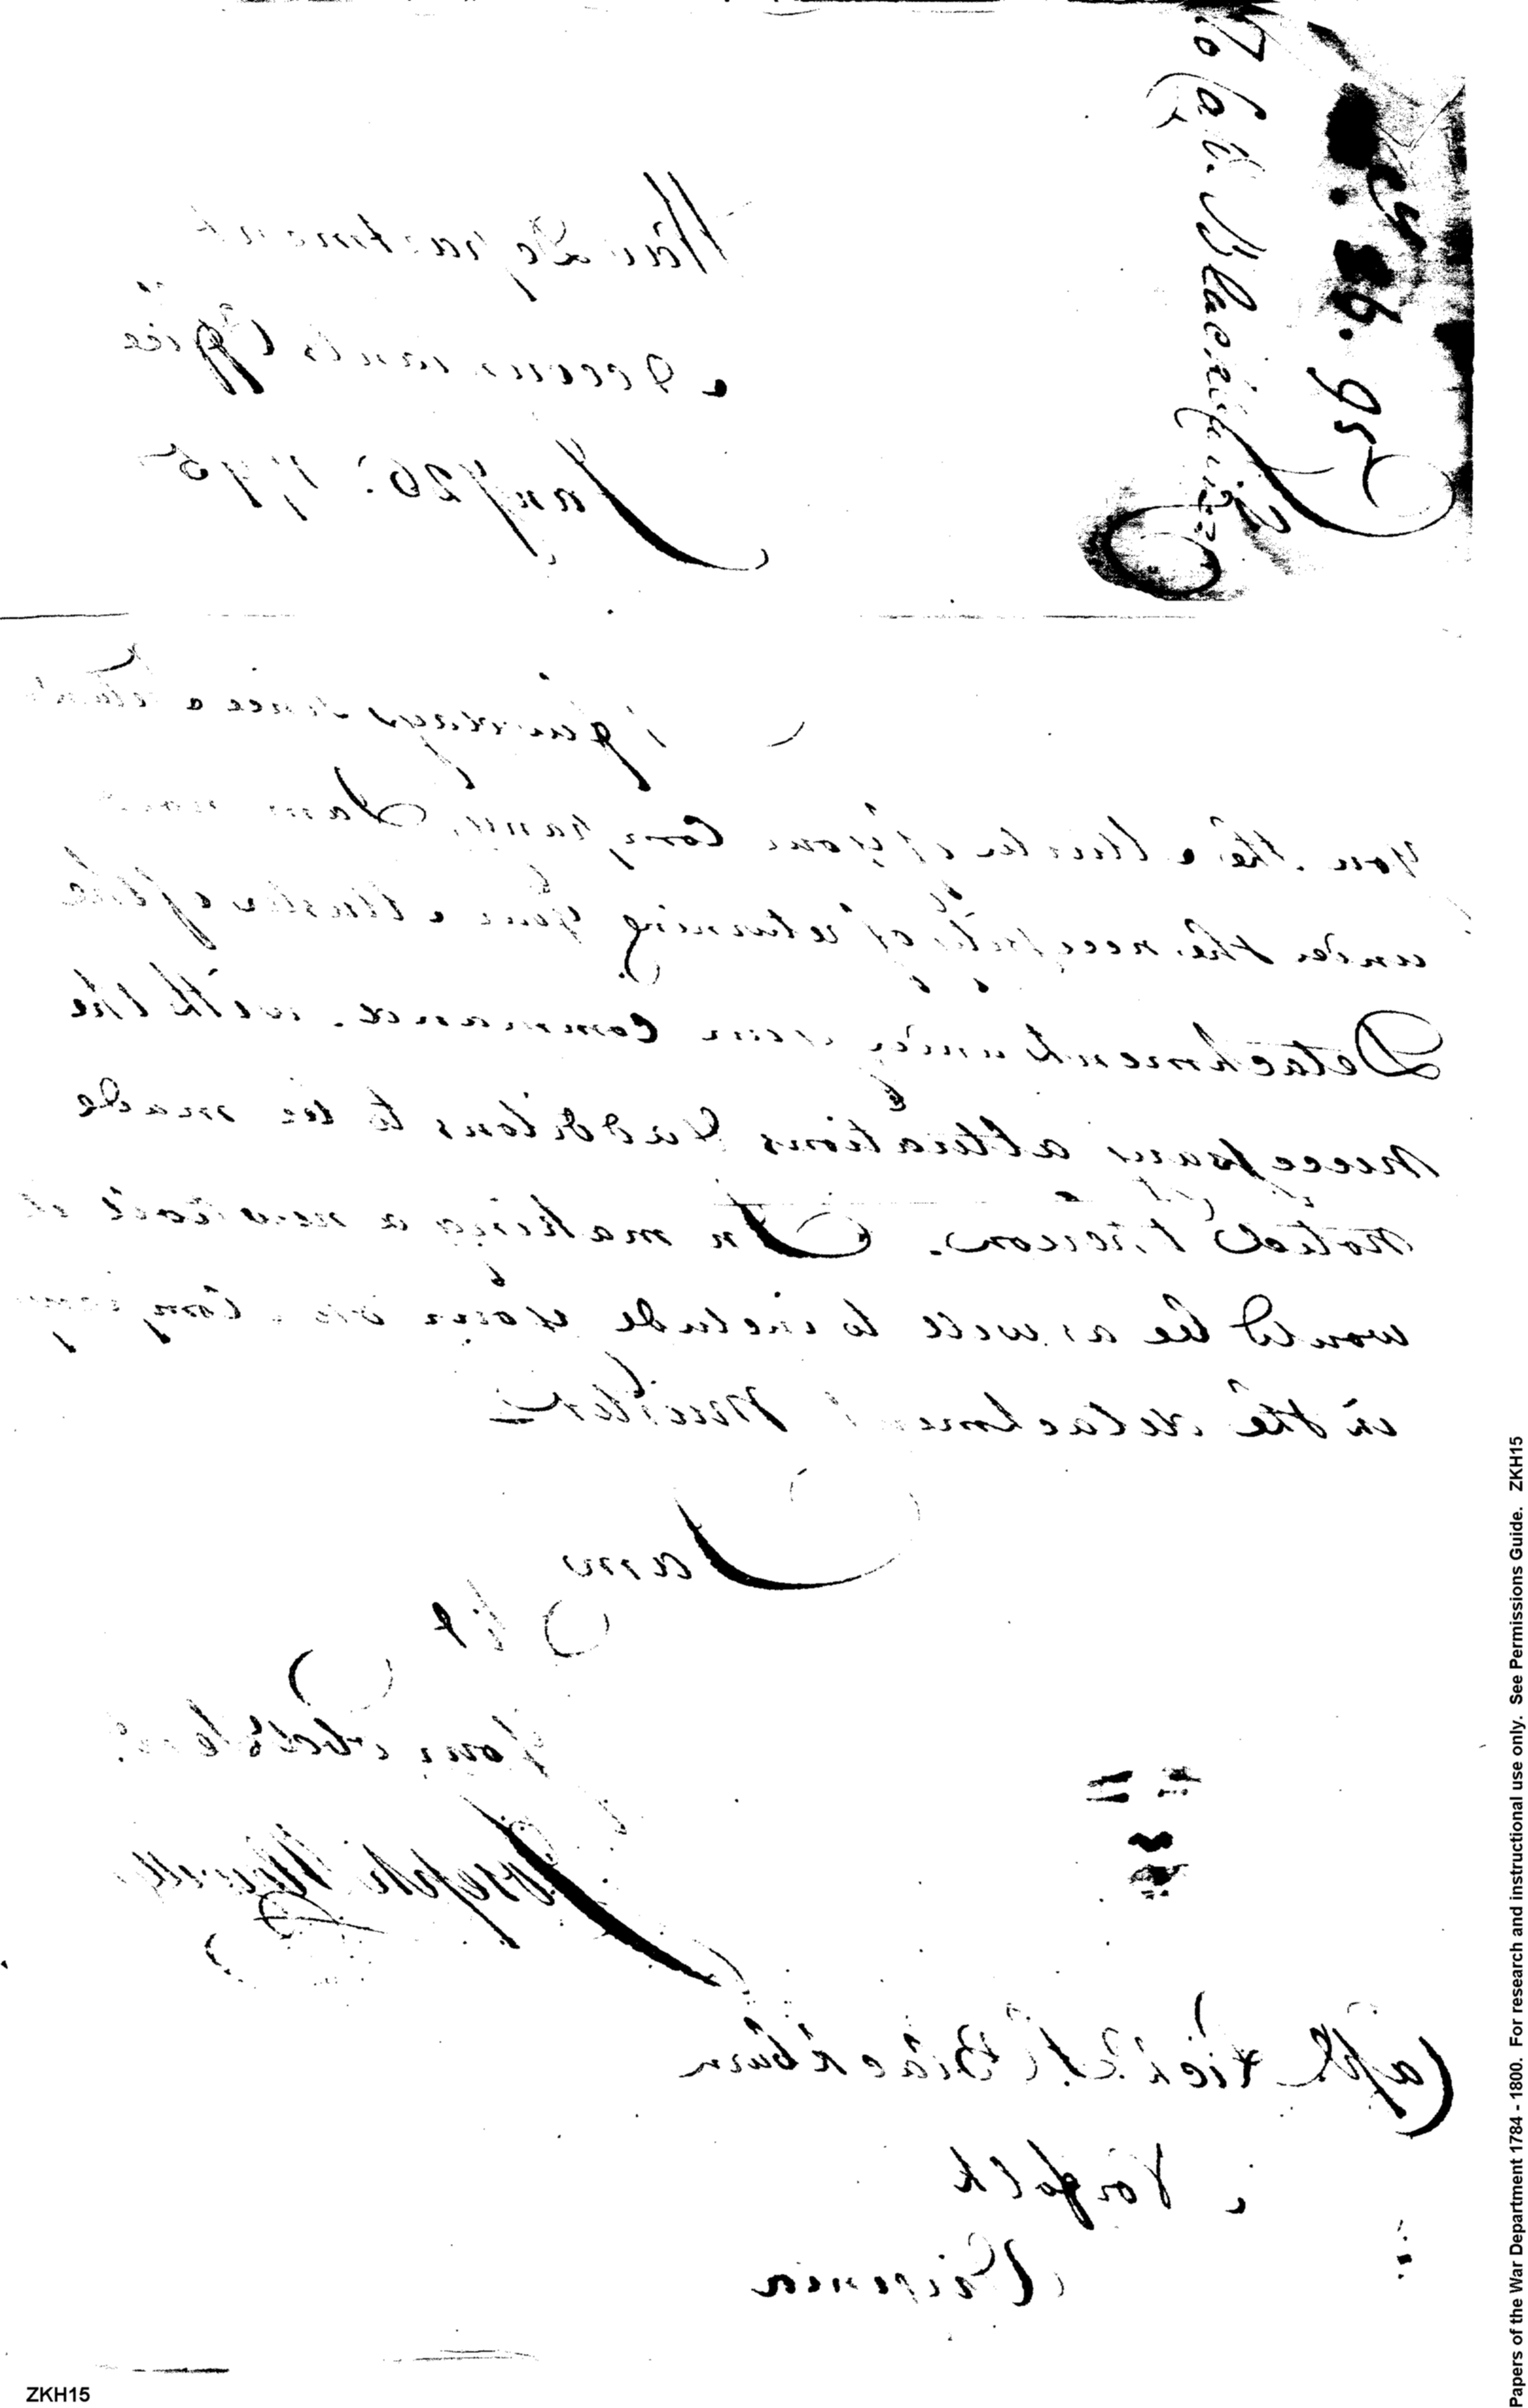 To Capt. Blackburn
26. 95
War Department
Accountants Office
Jany 26: 1795
Sir
A few days since a
you the Muster of your Company, I am now
under the necessity of returning your Muster of the
Detachment under your command, with the
necessary alterations & additons to be made
noticed thereon. In making a new one it
would be as well to include your own Company
in the detachment Musters
I am
Sir
Your Obed
Joseph Howell
Capt. Blackburn
Norfolk
Virginia
ZKH15
Papers of the War Department 1784 - 1800. For research and instructional use only. See Permissions Guide. ZKH15